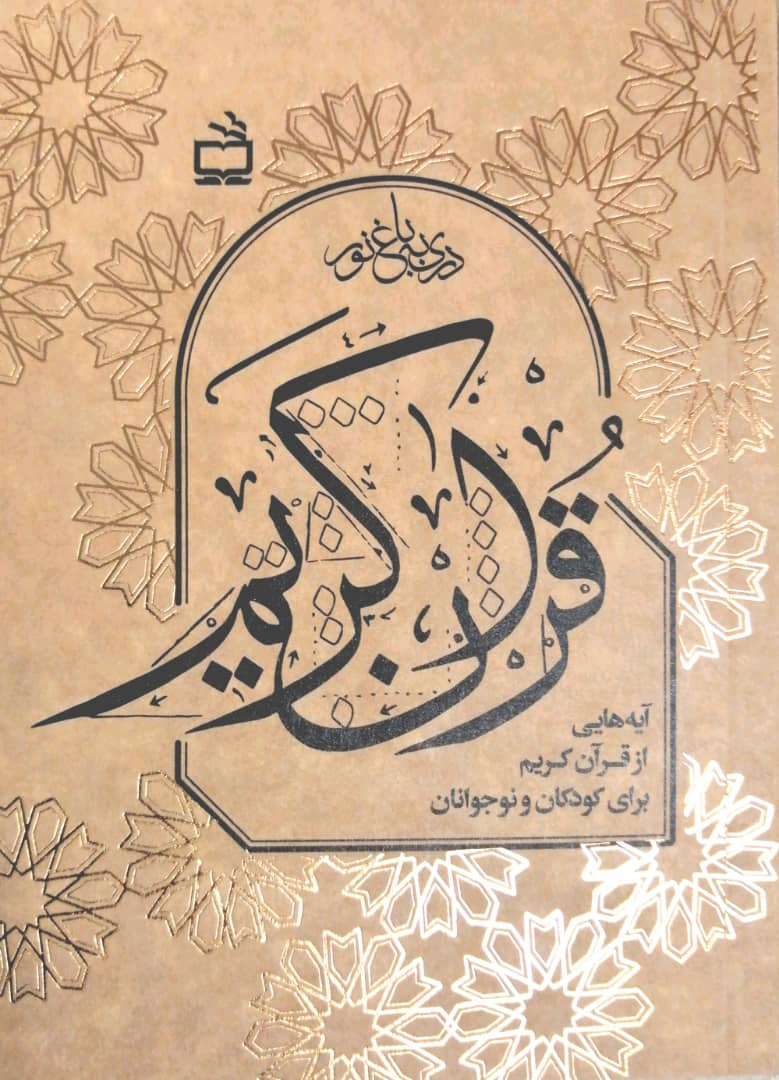 دری به باغ نور
قُرآن کریم
آیه‌هایی
از قرآن کریم
برای کودکان و نوجوانان